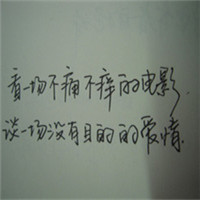 看一场不痛不痒的电影
谈一场没有目的的爱情.